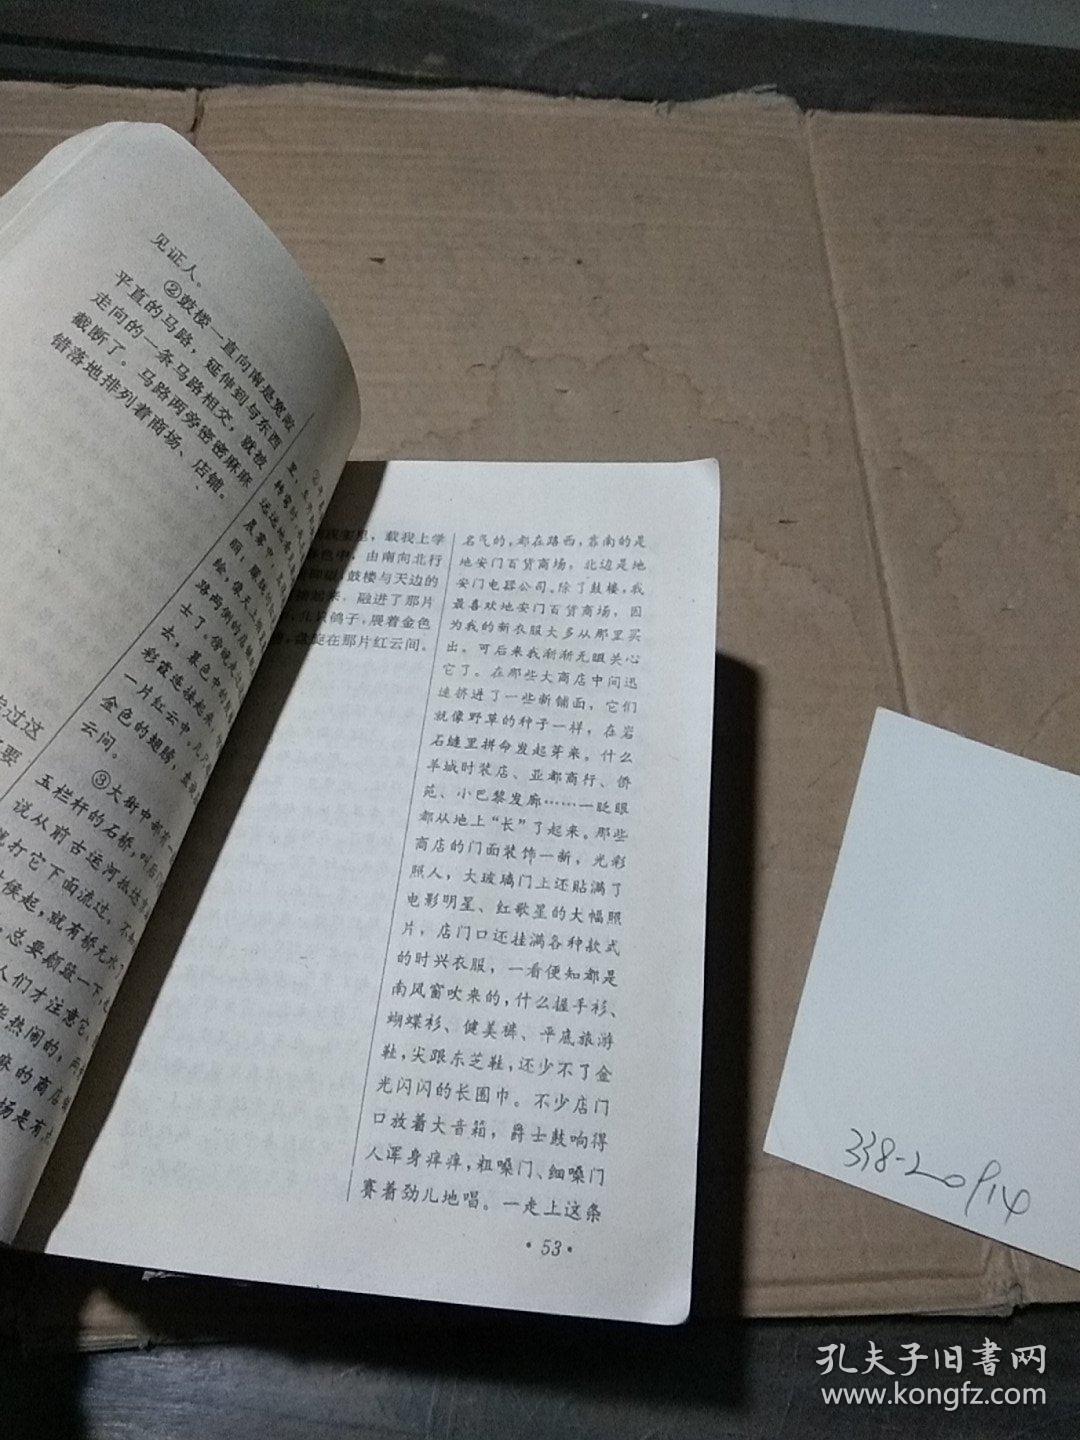 见证人。
②鼓楼一直向南是宽敞
平直的马路，延伸到与东西
走向的一条马路相交，就被
截断了。马路两旁密密麻麻
错落地排列着商场、店铺。
远远地
晨雾中
丽，朦胧的
绘，像天上的
路两侧的店铺
士了。傍晚
去，暮色中的
彩霞连接起来，
一片红云中，几只
金色的翅膀，盘旋
云间。
③大街中部有一
玉栏杆的石桥，叫后门
说从前古运河
打它下面流过，不知
候起，就有桥无水了
总要颠簸一下，
人们才注意它。
热闹的，两
麻的商店
场是有
过这
要
里，载我上学
色中，由南向北行
鼓楼与天边的
起来，融进了那片
几只鸽子，展着金色
盘旋在那片红云间。
名气的，都在路西，靠南的是
地安门百货商场，北边是地
安门电器公司。除了鼓楼，我
最喜欢地安门百货商场，因
为我的新衣服大多从那里买
出。可后来我渐渐无暇关心
它了。在那些大商店中间迅
速挤进了一些新铺面，它们
就像野草的种子一样，在岩
石缝里拼命发起芽来。什么
羊城时装店、亚都商行、侨
苑、小巴黎发廊……一眨眼
都从地上“长”了起来。那些
商店的门面装饰一新，光彩
照人，大玻璃门上还贴满了
电影明星、红歌星的大幅照
片，店门口还挂满各种款式
的时兴衣服，一看便知都是
南风窗吹来的，什么握手衫、
蝴蝶衫、健美裤、平底旅游
鞋，尖跟东芝鞋，还少不了金
光闪闪的长围巾。不少店门
口放着大音箱，爵士鼓响得
人浑身痒痒，粗嗓门、细嗓门
赛着劲儿地唱。一走上这条
·53·
338-20914
孔夫子旧书网
www.kongfz.com